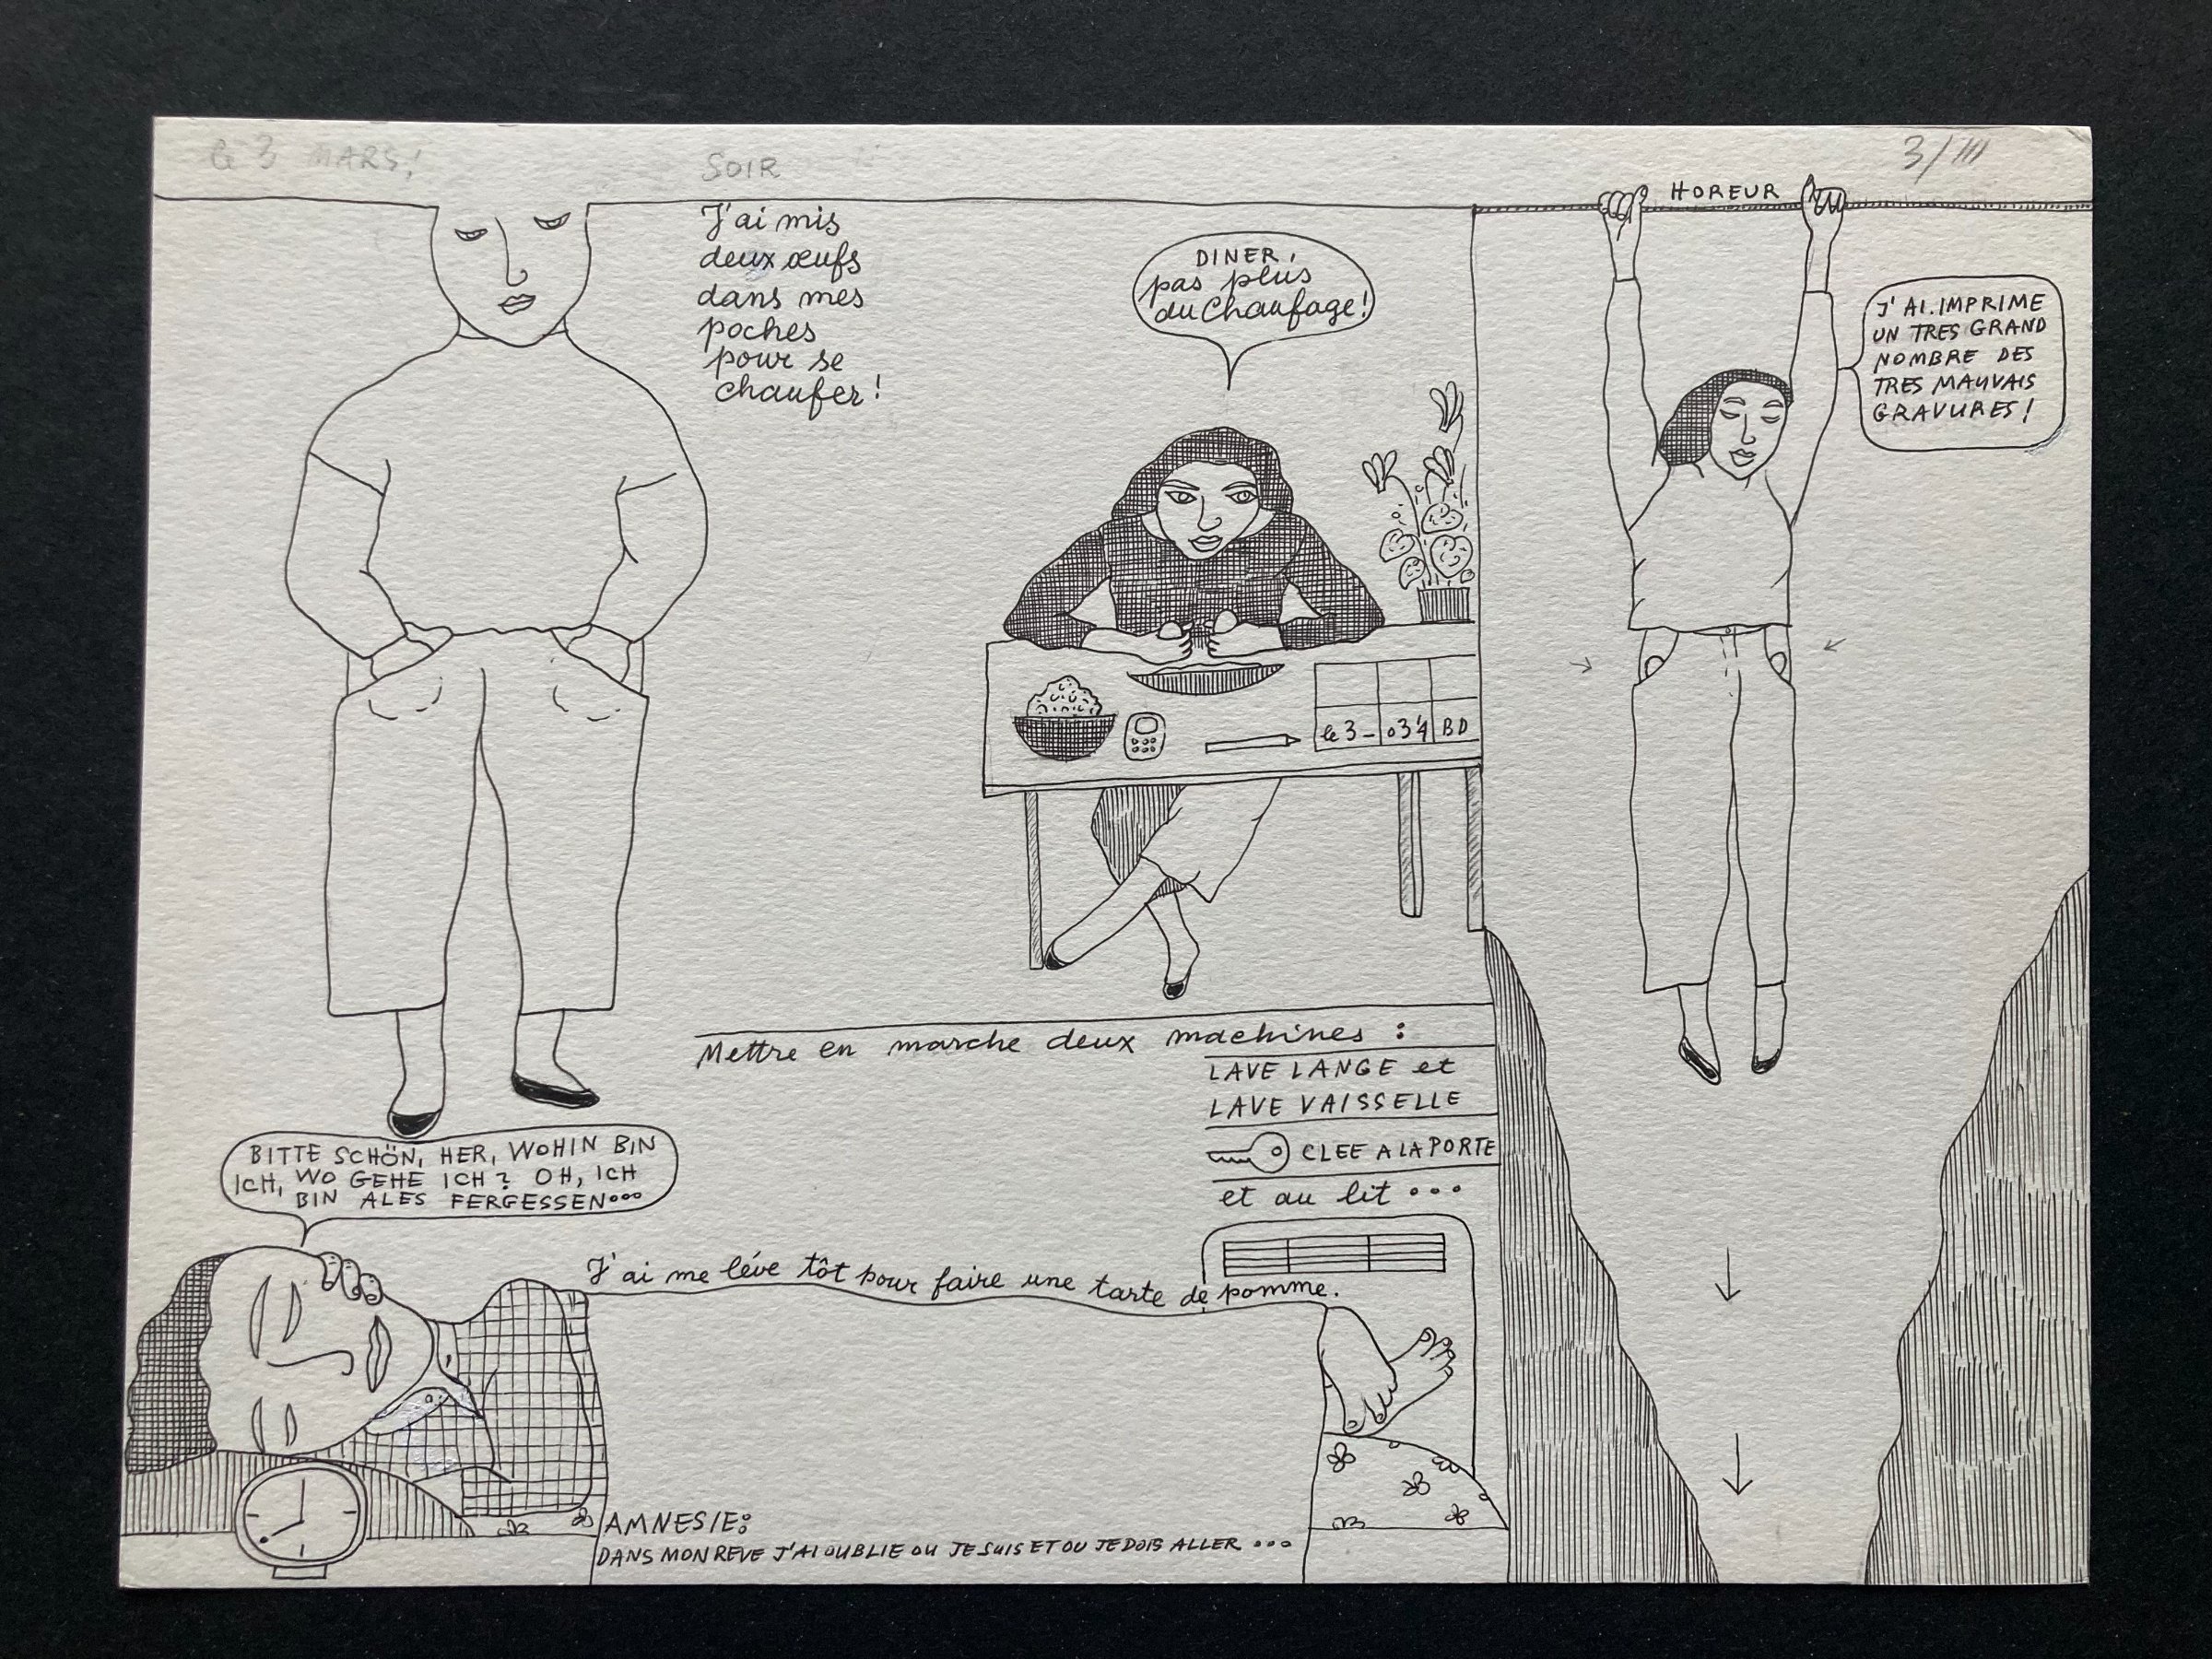 le 3 MARS!
SOIR
3/III
J'ai mis
deux œufs
dans mes
poches
pour se
chaufer!
DINER,
pas plus
du Chaufage!
HOREUR
J'AI.IMPRIME
UN TRES GRAND
NOMBRE DES
TRES MAUVAIS
GRAVURES!
le 3- 034 BD
Mettre en marche deux machines :
LAVE LANGE et
LAVE VAISSELLE
CLEE A LA PORTE
et au lit ...
BITTE SCHÖN, HER, WOHIN BIN
ICH, WO GEHE ICH? OH, ICH
BIN ALES FERGESSEN...
J'ai me léve tôt pour faire une tarte de pomme.
AMNESIE:
DANS MON REVE J'AI OUBLIE OU JE SUIS ET OU JE DOIS ALLER ...